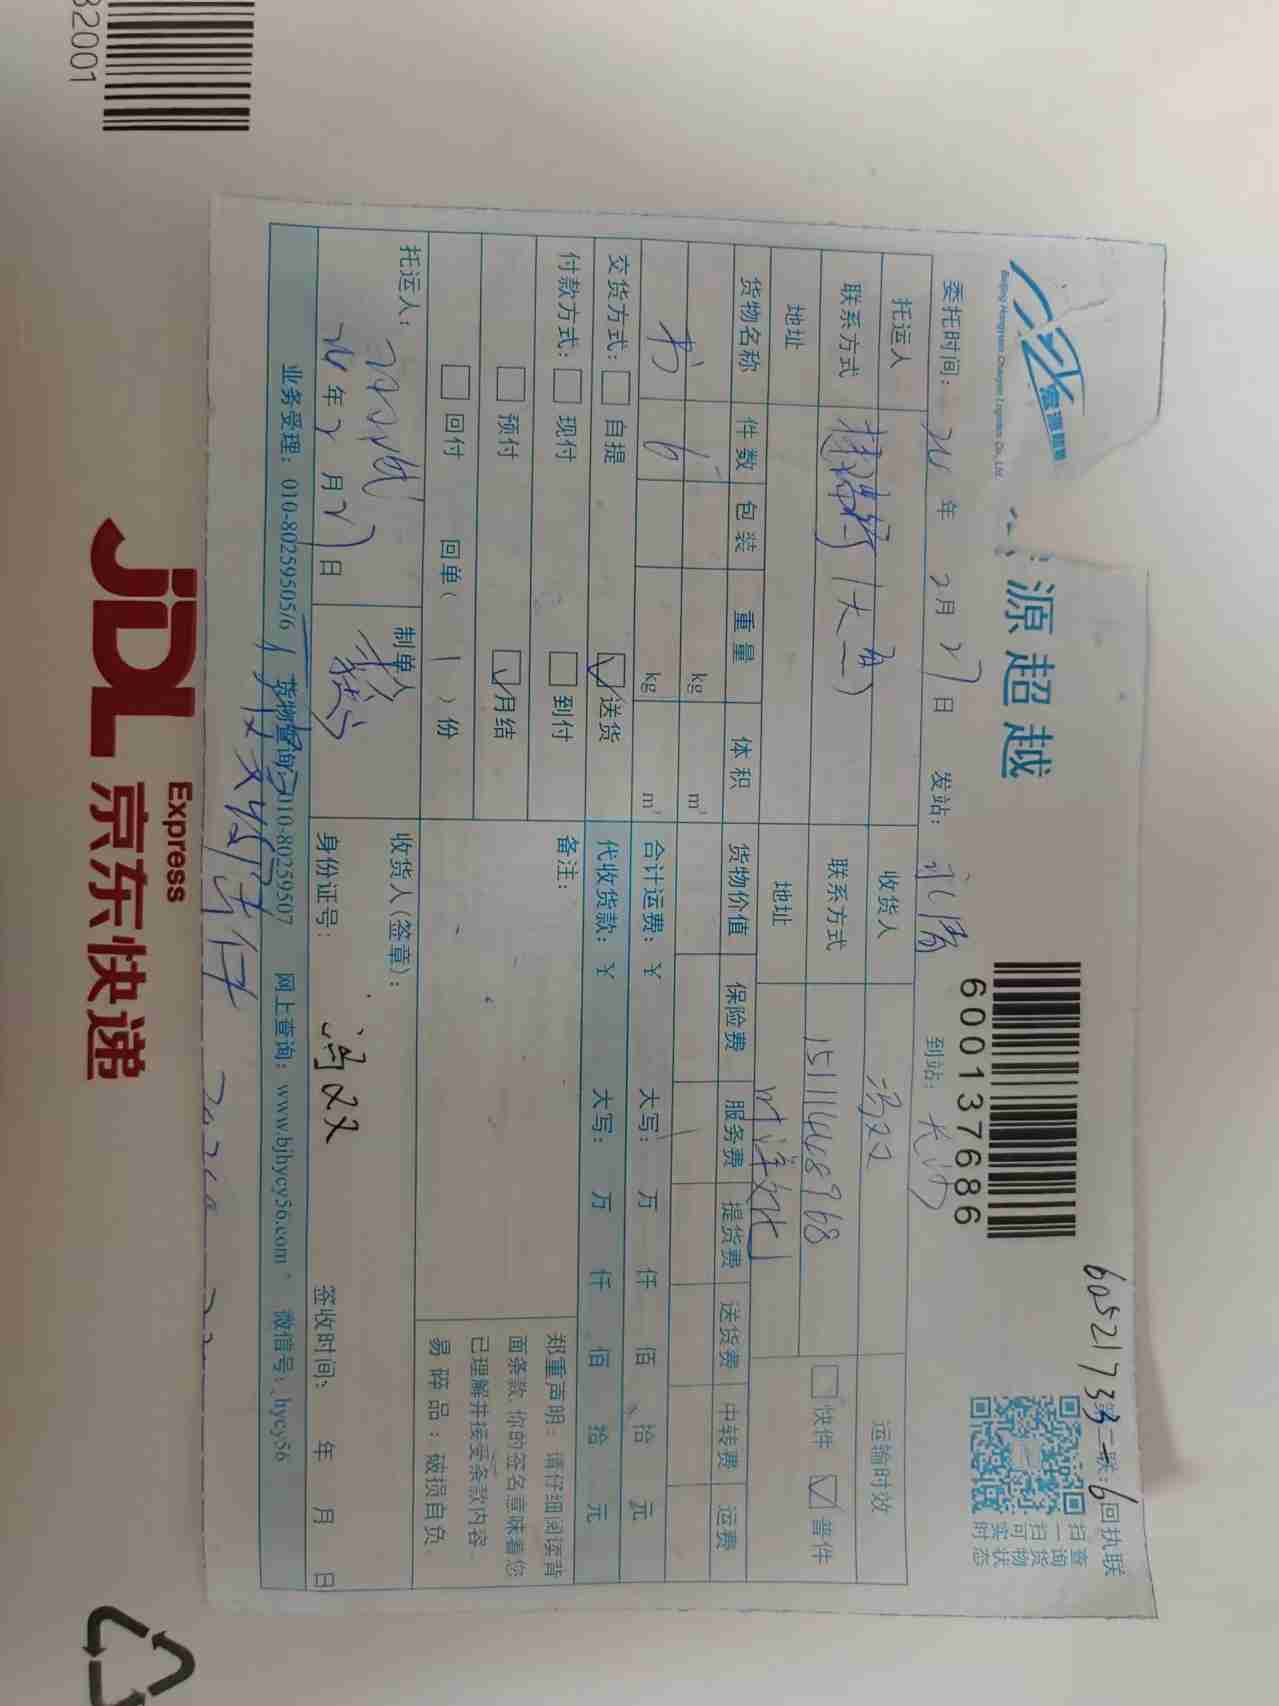 32001
宏源智慧
Beijing Hongyuan Chaoyue Logistics Co., Ltd.
源超越
600137686
60521733 6
二联:回执联
扫一扫可实时
查询货物状态
委托时间: 年 2月27日 发站: 到站: 长沙
托运人
收货人 冯双
运输时效
联系方式
联系方式 15111468968
快件 普件
地址
地址
货物名称 件数 包装 重量 体积 货物价值 保险费 服务费 提货费 送货费 中转费 运费
kg m³
书 6 kg m³
合计运费: ¥ 大写: 万 仟 佰 拾 元
交货方式: 自提 送货
代收货款: ¥ 大写: 万 仟 佰 拾 元
付款方式: 现付 到付
预付 月结
回付 回单( 1 )份
备注:
郑重声明:请仔细阅读背
面条款,你的签名意味着您
已理解并接受条款内容.
易碎品:破损自负.
托运人:
年2月27日
制单人
收货人(签章):
身份证号: 冯双
签收时间: 年 月 日
业务受理: 010-80259505/6 货物查询:010-80259507 网上查询: www.bjhycy56.com 微信号: hycy56
JDL
Express
京东快递